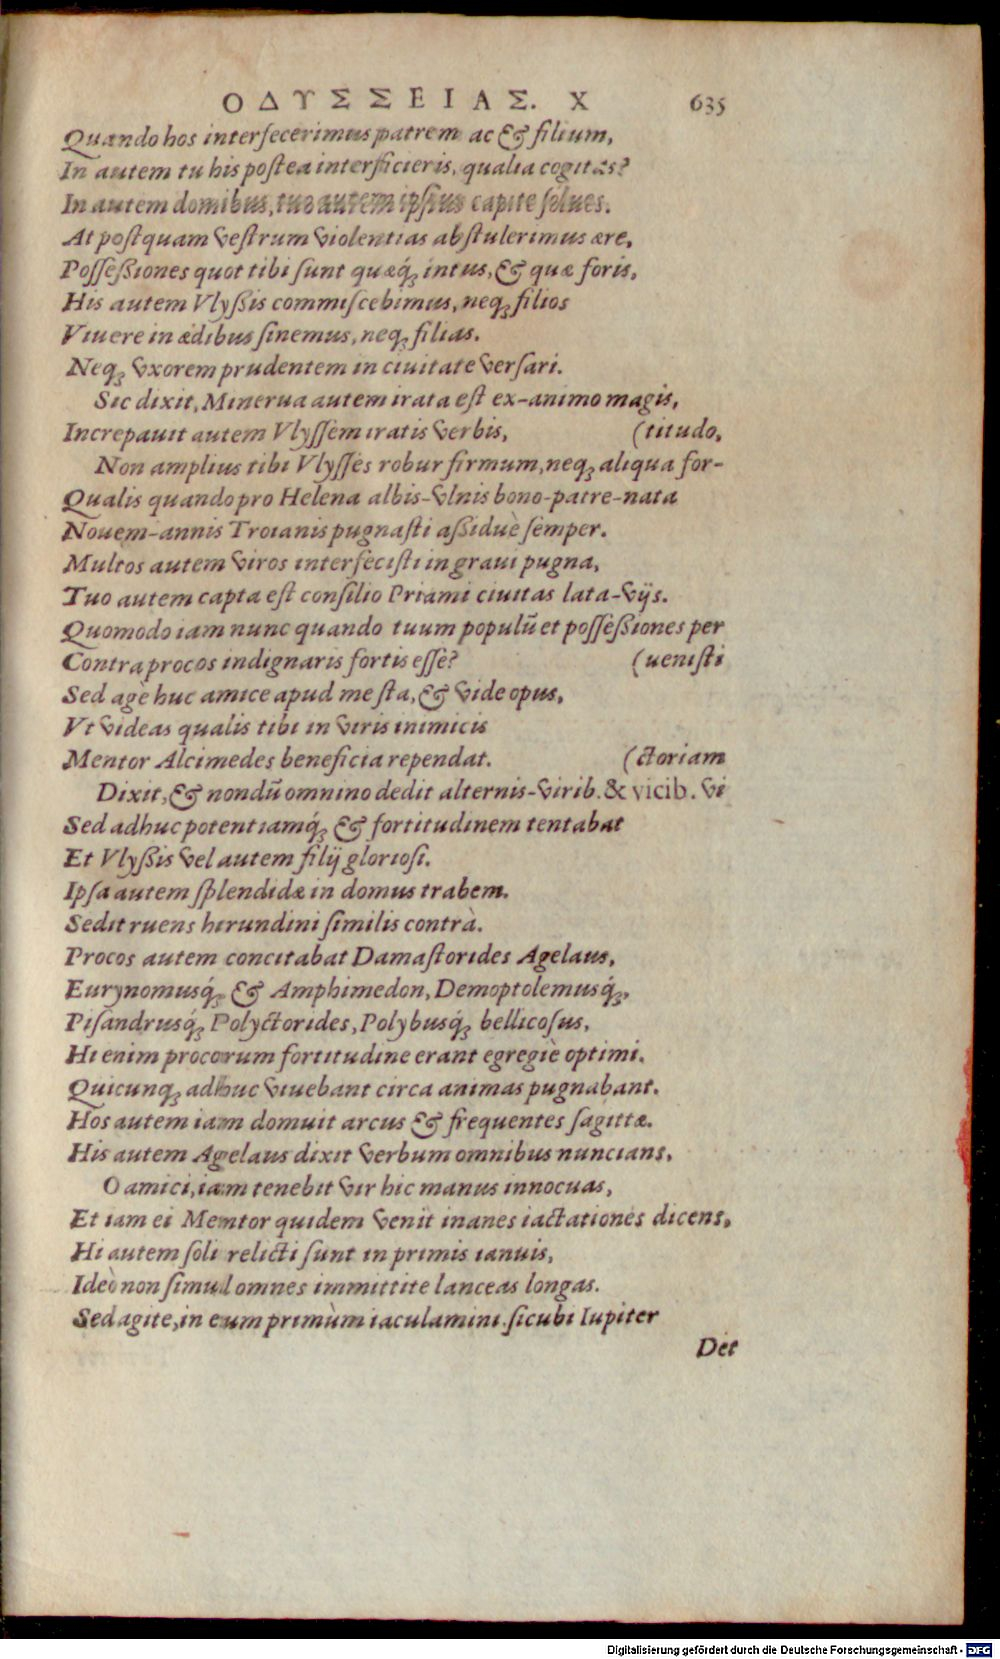 ΟΔΥΣΣΕΙΑΣ. Χ 635
Quando hos interfecerimus patrem ac & filium,
In autem tu his postea interficieris, qualia cogitas?
In autem domibus, tuo autem ipsius capite solues.
At postquam vestrum violentias abstulerimus ære,
Possessiones quot tibi sunt quæq́; intus, & quæ foris,
His autem Vlyssis commiscebimus, neq; filios
Viuere in ædibus sinemus, neq; filias.
Neq; vxorem prudentem in ciuitate versari.
Sic dixit, Minerua autem irata est ex-animo magis,
Increpauit autem Vlyssem iratis verbis, (titudo,
Non amplius tibi Vlysses robur firmum, neq; aliqua for-
Qualis quando pro Helena albis-vlnis bono-patre-nata
Nouem-annis Troianis pugnasti assiduè semper.
Multos autem viros interfecisti in graui pugna,
Tuo autem capta est consilio Priami ciuitas lata-vijs.
Quomodo iam nunc quando tuum populū et possessiones per
Contra procos indignaris fortis esse? (uenisti
Sed agè huc amice apud me sta, & vide opus,
Vt videas qualis tibi in viris inimicis
Mentor Alcimedes beneficia rependat. (ctoriam
Dixit, & nondū omnino dedit alternis-virib. & vicib. vi
Sed adhuc potentiamq́; & fortitudinem tentabat
Et Vlyssis vel autem filij gloriosi.
Ipsa autem splendidæ in domus trabem.
Sedit ruens hirundini similis contrà.
Procos autem concitabat Damastorides Agelaus,
Eurynomusq́; & Amphimedon, Demoptolemusq́;,
Pisandrusq́; Polyctorides, Polybusq́; bellicosus,
Hi enim procorum fortitudine erant egregiè optimi.
Quicunq; adhuc viuebant circa animas pugnabant.
Hos autem iam domuit arcus & frequentes sagittæ.
His autem Agelaus dixit verbum omnibus nuncians,
O amici, iam tenebit vir hic manus innocuas,
Et iam ei Memtor quidem venit inanes iactationes dicens,
Hi autem soli relicti sunt in primis ianuis,
Ideò non simul omnes immittite lanceas longas.
Sed agite, in eum primùm iaculamini. sicubi Iupiter
Det
Digitalisierung gefördert durch die Deutsche Forschungsgemeinschaft - DFG